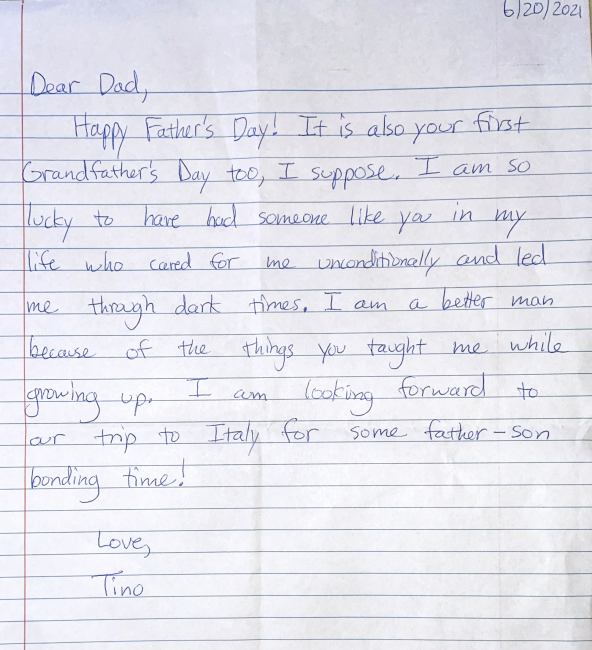 6/20/2021
Dear Dad,
Happy Father's Day! It is also your first
Grandfather's Day too, I suppose. I am so
lucky to have had someone like you in my
life who cared for me unconditionally and led
me through dark times. I am a better man
because of the things you taught me while
growing up. I am looking forward to
our trip to Italy for some father-son
bonding time!
Love,
Tino